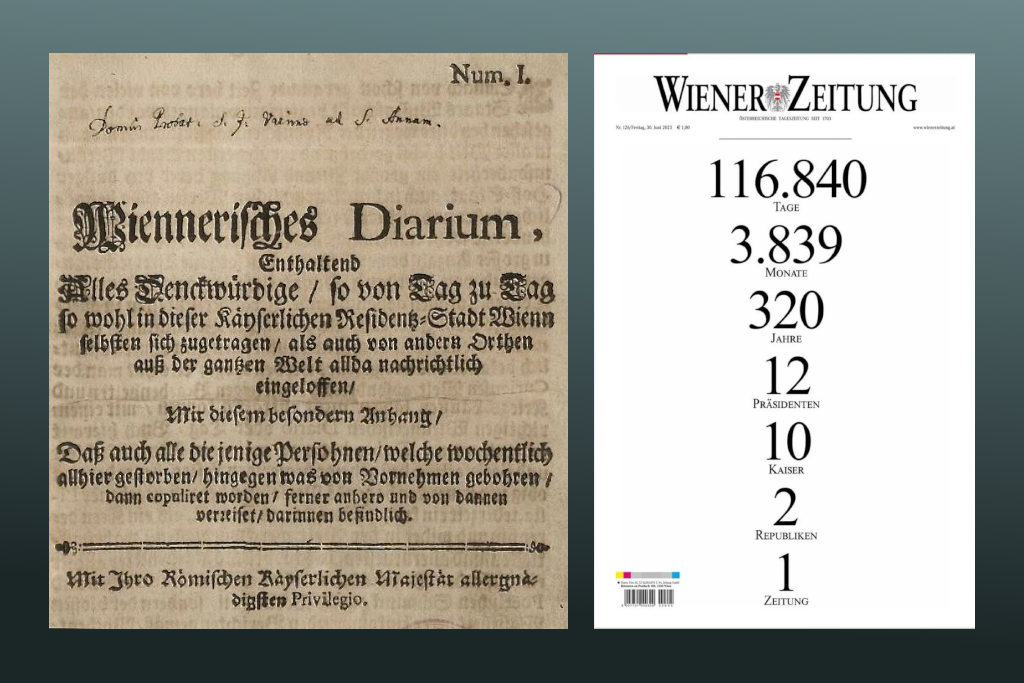 Num. I.
Wiennerisches Diarium,
Enthaltend
Alles Denckwürdige / so von Tag zu Tag
so wohl in dieser Käyserlichen Residentz-Stadt Wienn
selbsten sich zugetragen / als auch von andern Orthen
auß der gantzen Welt allda nachrichtlich
eingeloffen /
Mit diesem besondern Anhang /
Daß auch alle die jenige Persohnen / welche wochentlich
allhier gestorben / hingegen was von Vornehmen gebohren /
dann copuliret worden / ferner anhero und von dannen
verreiset / darinnen befindlich.
Mit Ihro Römischen Käyserlichen Majestät allergnä-
digsten Privilegio.
WIENER ZEITUNG
ÖSTERREICHISCHE TAGESZEITUNG SEIT 1703
Nr. 126/Freitag, 30. Juni 2023 € 1,80
www.wienerzeitung.at
116.840
TAGE
3.839
MONATE
320
JAHRE
12
PRÄSIDENTEN
10
KAISER
2
REPUBLIKEN
1
ZEITUNG